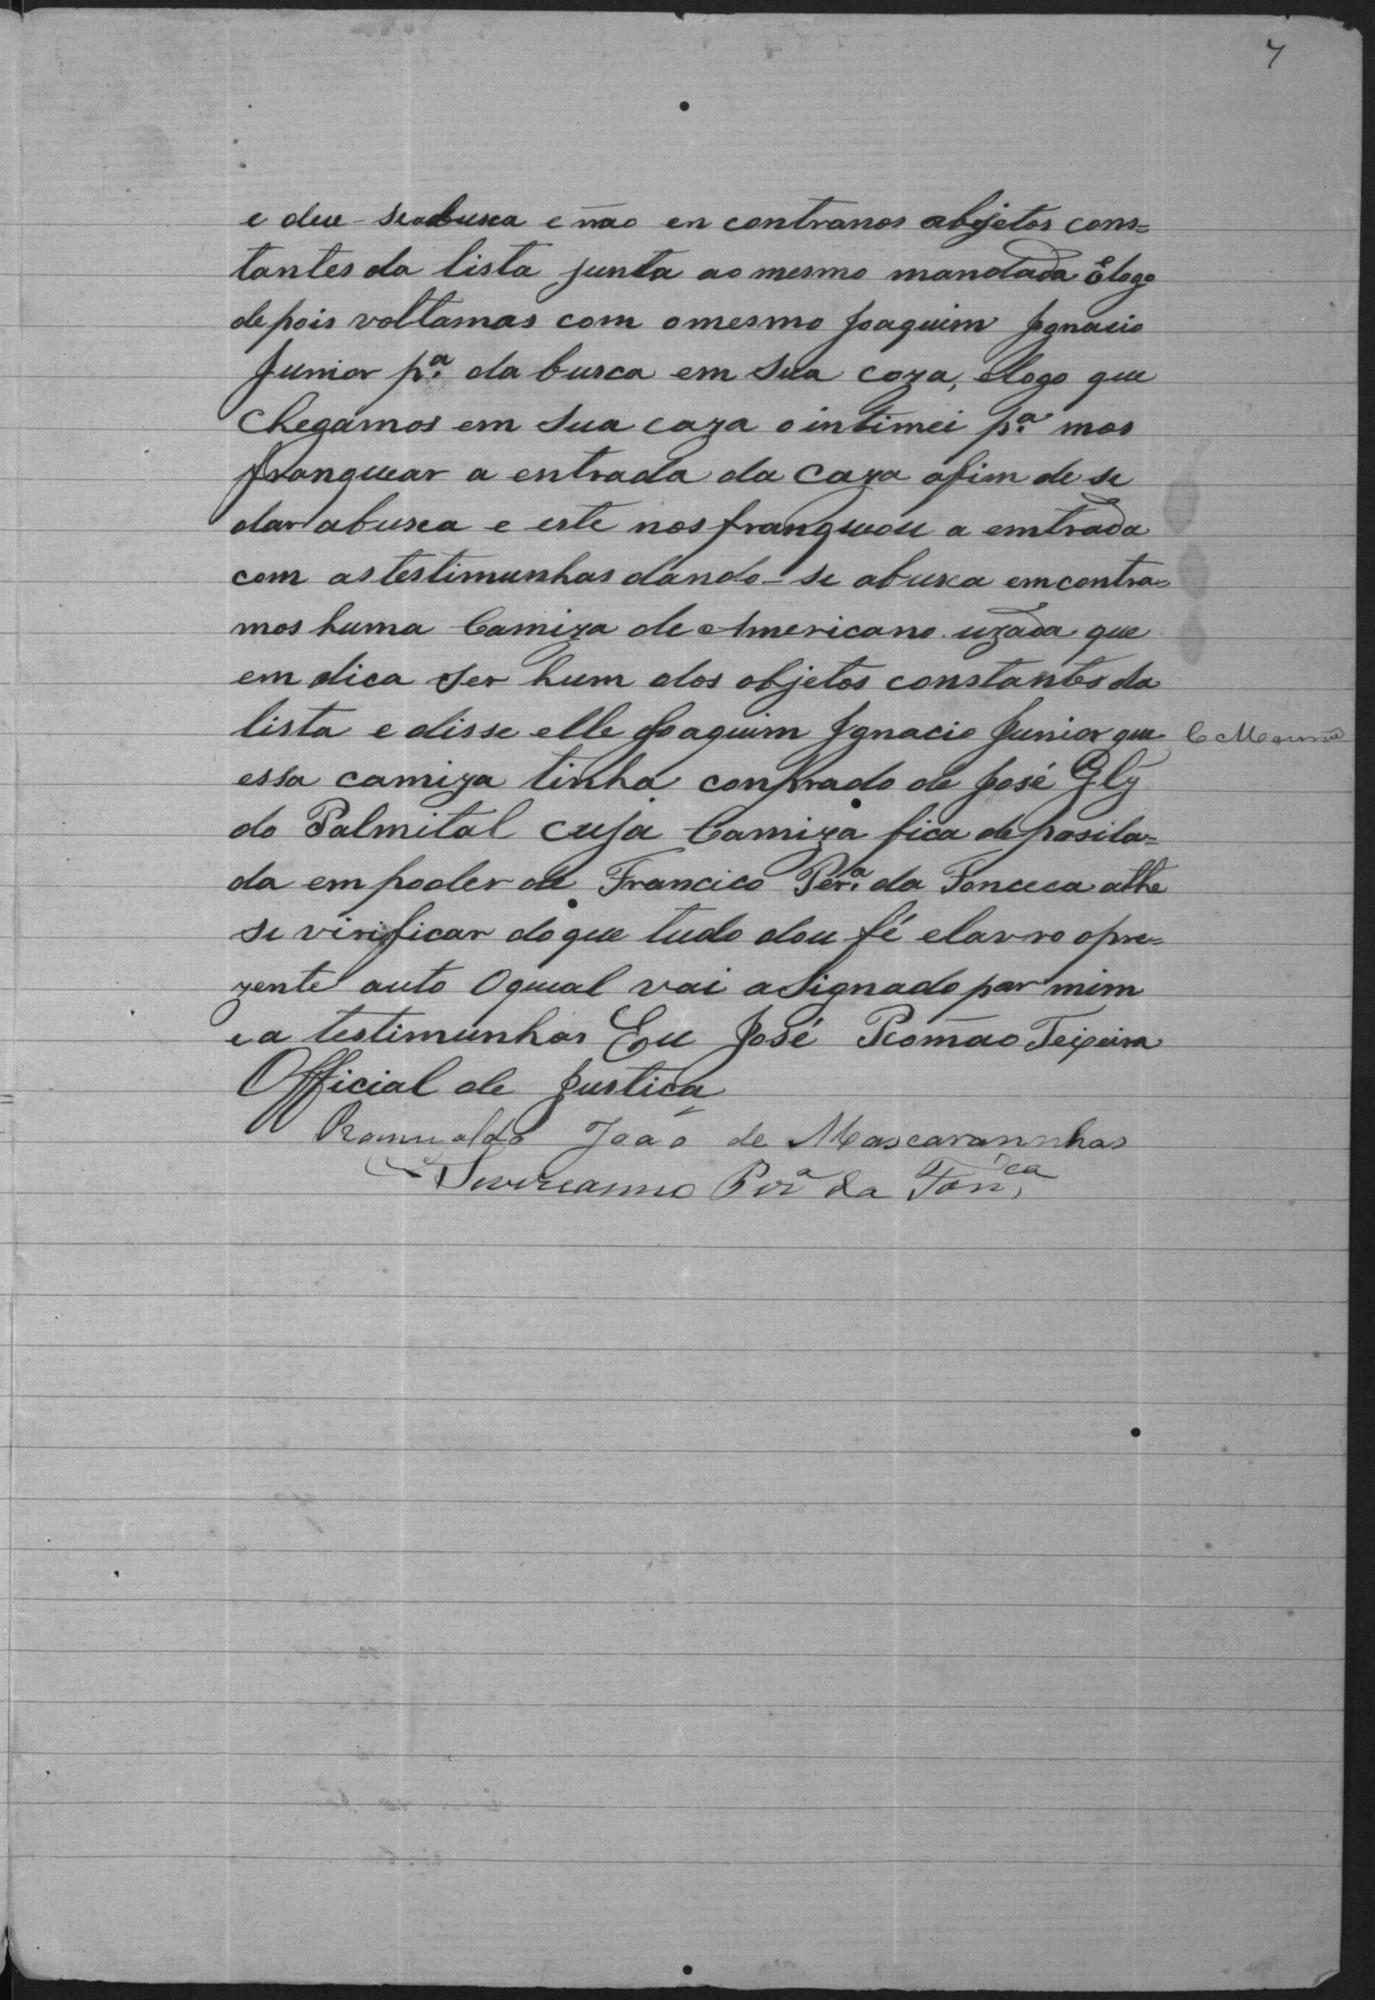 7
e deu-se abusca e não en contramos objetos cons=
tantes da lista junta ao mesmo mandada E logo
depois voltamas com omesmo Joaquim Ignacio
Junior p.ª da busca em sua coza, elogo que
chegamos em sua caza ointimei p.ª nos
franquear a entrada da caza afim de se
dar abusca e este nos franqueou a emtrada
com as testimunhas dando-se abusca emcontra=
mos huma Camiza de Americano uzada que
em dica ser hum dos objetos constantes da
lista e disse elle Joaquim Ignacio Junior que
essa camiza tinha conprado de José
do Palmital cuja Camiza fica deposita=
da em poder de Francico Per.ª da Fonceca athe
se virificar do que tudo dou fé elavro opre=
zente auto Oqual vai asignado por mim
e a testimunhas Eu José Romão Teixeira
Official de Justica
Romualdo João de Mascarannhas
Severeanno Per.ª da Fon.ca